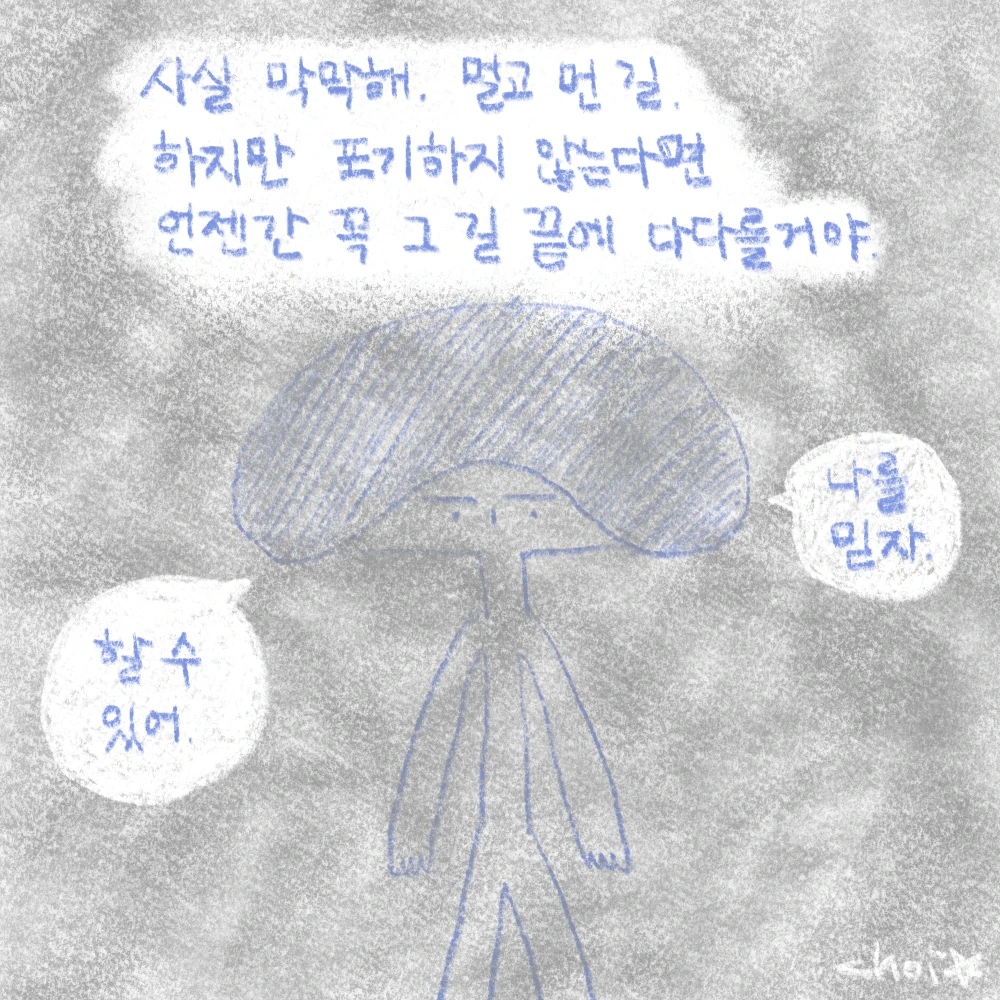 사실 막막해. 멀고 먼 길.
하지만 포기하지 않는다면
언젠간 꼭 그 길 끝에 다다를거야.
나를
믿자.
할 수
있어.
choi☆